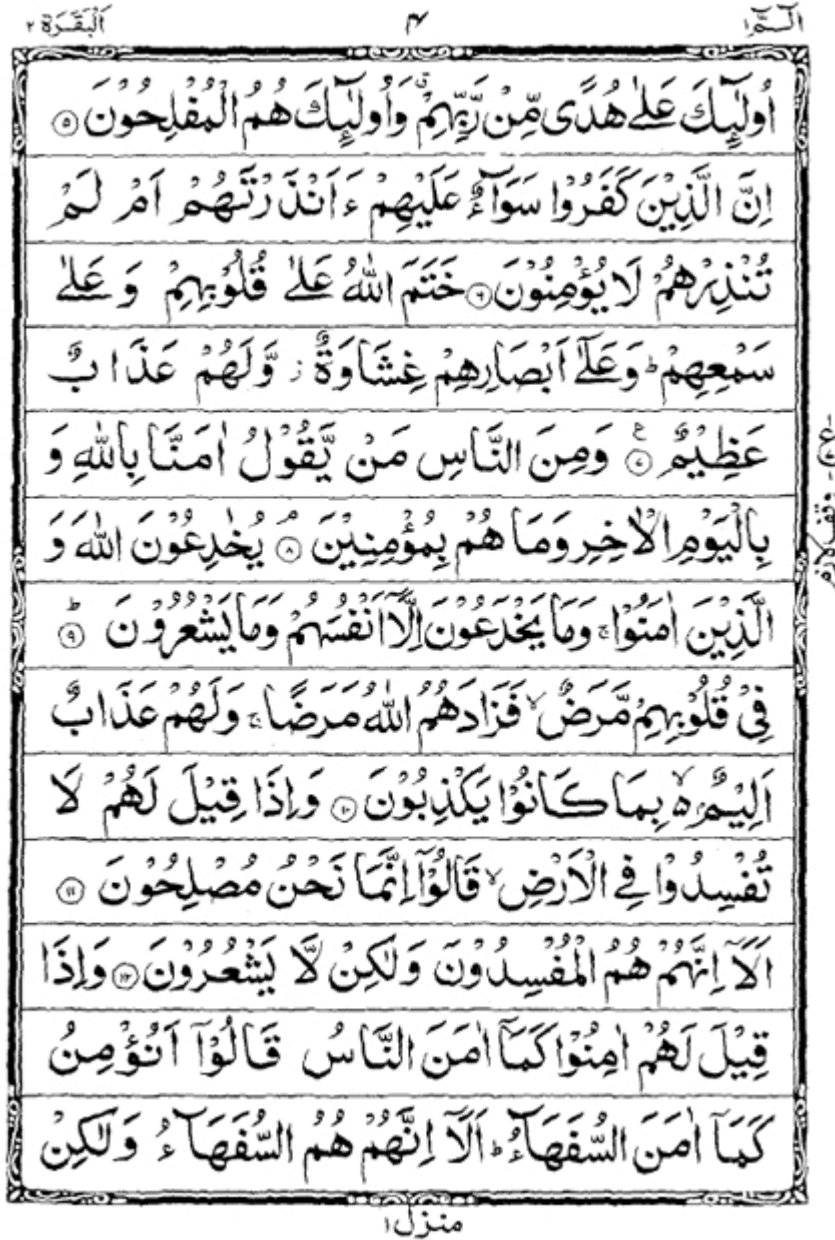 الٓـمّٓ ۱ ۴ اَلْبَقَرَة ۲
اُولٰٓئِكَ عَلٰى هُدًى مِّنْ رَّبِّهِمْ ۗ وَاُولٰٓئِكَ هُمُ الْمُفْلِحُوْنَ ۝۵
اِنَّ الَّذِيْنَ كَفَرُوْا سَوَآءٌ عَلَيْهِمْ ءَاَنْذَرْتَهُمْ اَمْ لَمْ
تُنْذِرْهُمْ لَا يُؤْمِنُوْنَ ۝۶ خَتَمَ اللّٰهُ عَلٰى قُلُوْبِهِمْ وَ عَلٰى
سَمْعِهِمْ ؕ وَعَلٰٓى اَبْصَارِهِمْ غِشَاوَةٌ ز وَّلَهُمْ عَذَابٌ
عَظِيْمٌ ۝۷ ع وَمِنَ النَّاسِ مَنْ يَّقُوْلُ اٰمَنَّا بِاللّٰهِ وَ
بِالْيَوْمِ الْاٰخِرِ وَمَا هُمْ بِمُؤْمِنِيْنَ ۝۸ۘ يُخٰدِعُوْنَ اللّٰهَ وَ
الَّذِيْنَ اٰمَنُوْا ۚ وَمَا يَخْدَعُوْنَ اِلَّآ اَنْفُسَهُمْ وَمَا يَشْعُرُوْنَ ؕ۝۹
فِىْ قُلُوْبِهِمْ مَّرَضٌ ۙ فَزَادَهُمُ اللّٰهُ مَرَضًا ۚ وَلَهُمْ عَذَابٌ
اَلِيْمٌۢ ۙ۬ بِمَا كَانُوْا يَكْذِبُوْنَ ۝۱۰ وَاِذَا قِيْلَ لَهُمْ لَا
تُفْسِدُوْا فِى الْاَرْضِ ۙ قَالُوْٓا اِنَّمَا نَحْنُ مُصْلِحُوْنَ ۝۱۱
اَلَآ اِنَّهُمْ هُمُ الْمُفْسِدُوْنَ وَلٰكِنْ لَّا يَشْعُرُوْنَ ۝۱۲ وَاِذَا
قِيْلَ لَهُمْ اٰمِنُوْا كَمَآ اٰمَنَ النَّاسُ قَالُوْٓا اَنُؤْمِنُ
كَمَآ اٰمَنَ السُّفَهَآءُ ؕ اَلَآ اِنَّهُمْ هُمُ السُّفَهَآءُ وَلٰكِنْ
منزل ۱
وقف لازم